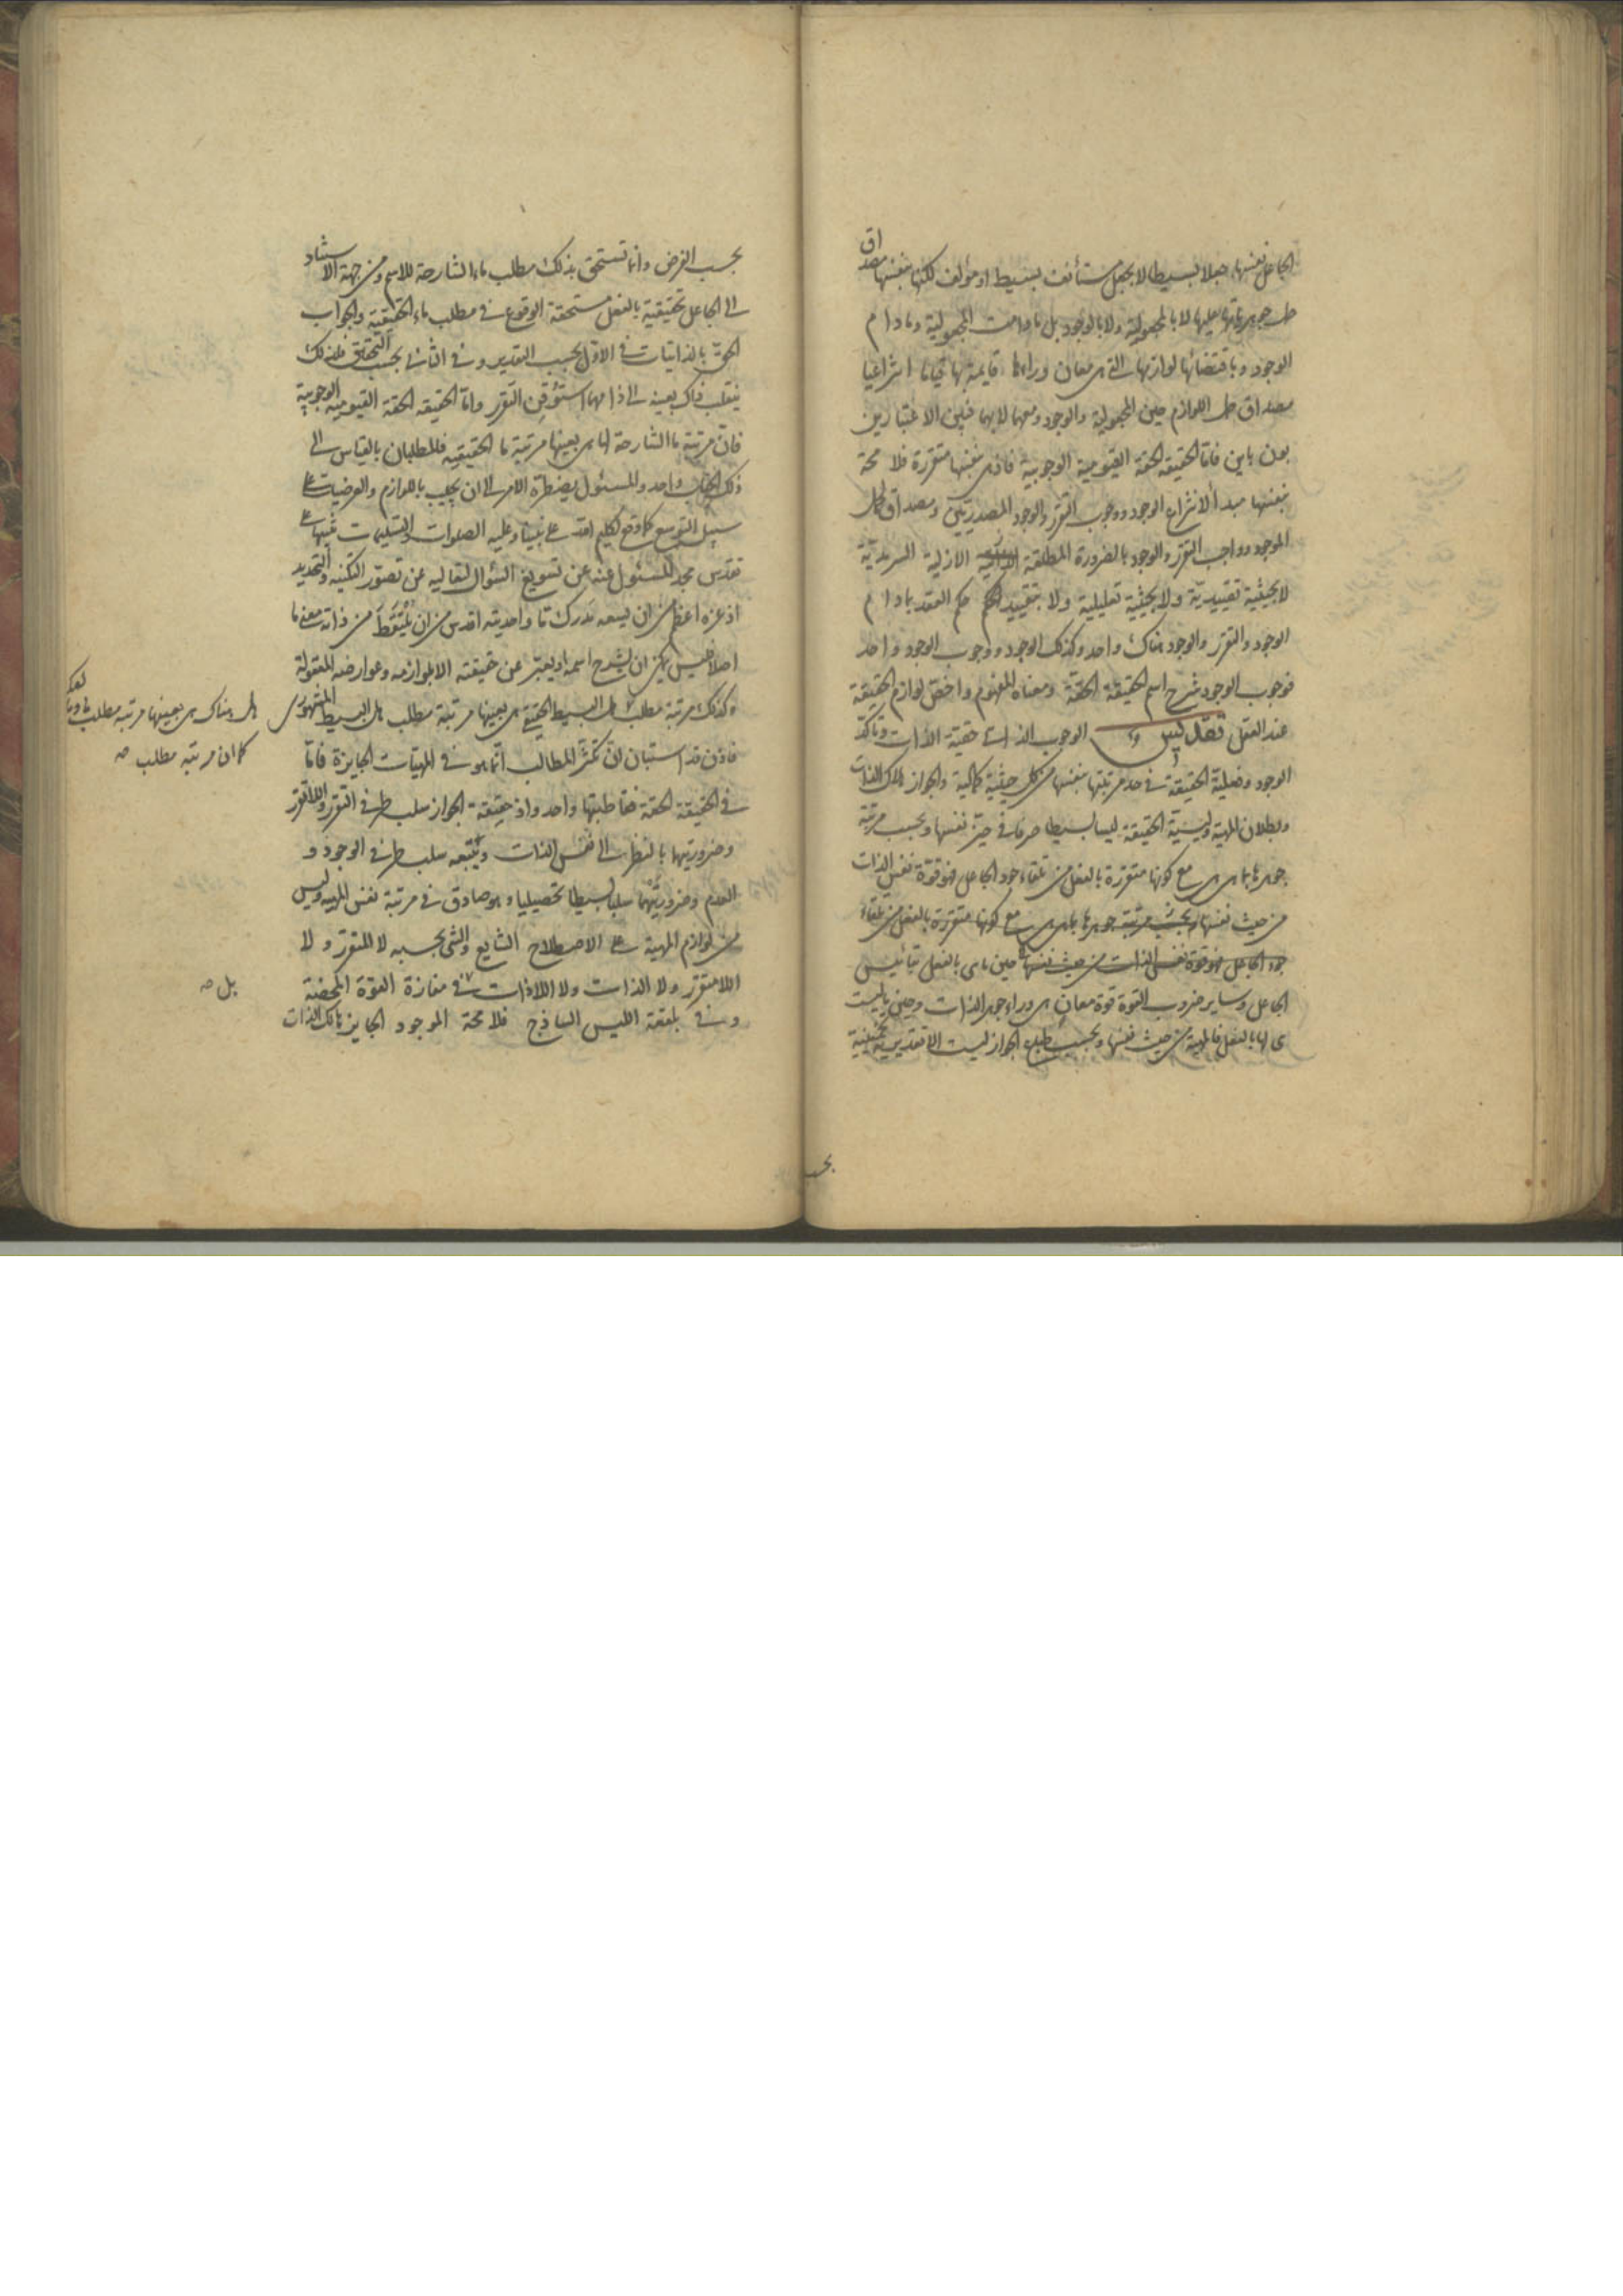 الجاعل نفسها جعلا بسيطا لا بجعل مستأنف بسيط او مؤلف لكنها بنفسها مصداق
حمل جوهرياتها عليها لا بالمجعولية ولا بالوجود بل مادامت المجعولية ومادام
الوجود وباقتضائها لوازمها التى هى معان وراءها قايمة بها قياما انتزاعيا
مصداق حمل اللوازم حين المجعولية والوجود ومعهما لا بهما فبين الاعتبارين
بون باين فاما الحقيقة الحقة القيومية الوجوبية فاذ هى بنفسها متقررة فلا محة
بنفسها مبدأ لانتزاع الوجود ووجوب التقرر والوجود المصدريين ومصداق لحمل
الموجود وواجب التقرر والوجود بالضرورة المطلقة الازلية السرمدية
لا بحيثية تقييدية ولا بحيثية تعليلية ولا بتقييد الحكم حكم العقد بمادام
الوجود والتقرر والوجود هناك واحد وكذلك الوجود ووجوب الوجود واحد
فوجوب الوجود شرح اسم الحقيقة الحقة ومعناه المفهوم واخص لوازم الحقيقة
عند العقل فصل ليس الوجوب الذاتى حقية الذات وتأكد
الوجود وفعلية الحقيقة فى حد مرتبتها بنفسها من كل حيثية كمالية والجواز هلاك الذات
وبطلان المهية وليسية الحقيقة ليسا بسيطا صرفا فى حيز نفسها وبحسب مرتبة
جوهرها بما هى هى مع كونها متقررة بالفعل من تلقاء جود الجاعل فهو قوة نفس الذات
من حيث نفسها وبحسب مرتبة جوهرها بما هى هى مع كونها متقررة بالفعل من تلقاء
جود الجاعل فهو قوة نفس الذات من حيث نفسها حين ما هى بالفعل بتأييس
الجاعل وساير ضروب القوة قوة معان هى وراء جوهر الذات وحين ما ليست
هى لها بالفعل فالمهية من حيث نفسها وبحسب طباع الجواز ليست الا تقديرية تخمينية
بحسب
بحسب الفرض وانما تستحق بذلك مطلب ماء الشارحة للاسم ومن جهة الاستناد
الى الجاعل تحقيقية بالفعل مستحقة الوقوع فى مطلب ماء الحقيقية والجواب
الحق بالذاتيات فى الاول بحسب التقدير وفى الثانى بحسب التحقق فلذلك
ينقلب ذاك بعينه الى ذا مهما استوقن التقرر واما الحقيقه الحقة القيومية الوجوبية
فان مرتبة ما الشارحة لها هى بعينها مرتبة ما الحقيقيه فالمطلبان بالقياس الى
ذلك الجناب واحد والمسئول يضطره الامر الى ان يجيب باللوازم والعرضيات على
سبيل التوسع كما وقع لكليم الله على نبينا وعليه الصلوات والتسليمات تنبيها على
تقدس مجد المسئول عنه عن تسويغ السؤال لتعاليه عن تصور التكنيه والتحديد
اذ عزه اعظم من ان يسعه مدرك ما واحديته اقدس من ان يلتقط من ذاته معنى ما
اصلا فليس يمكن ان يشرح اسمه او يعبر عن حقيقته الا بلوازمه وعوارضه المعقولة
وكذلك مرتبة مطلب هل البسيط الحقيقى هى بعينها مرتبة مطلب هل البسيط المشهورى
هل هناك هى بعينها مرتبه مطلب ما
كما ان مرتبه مطلب صه
فاذن قد استبان ان تكثر المطالب انما هو فى المهيات الجايزة فاما
فى الحقيقة الحقة فقاطبتها واحد واذ حقيقة الجواز سلب طرفى التقرر واللاتقرر
وضرورتيهما بالنظر الى نفس الذات ويتبعه سلب طرفى الوجود و
العدم وضرورتيهما سلبا بسيطا تحصيليا وهو صادق فى مرتبة نفس المهيه وليس
من لوازم المهية على الاصطلاح الشايع والشى بحسبه لا المتقرر ولا
اللامتقرر ولا الذات ولا اللاذات فى مفازة القوة المحضة
بل صه
وفى بلقعة الليس الساذج فلا محة الموجود الجايز هالك الذات